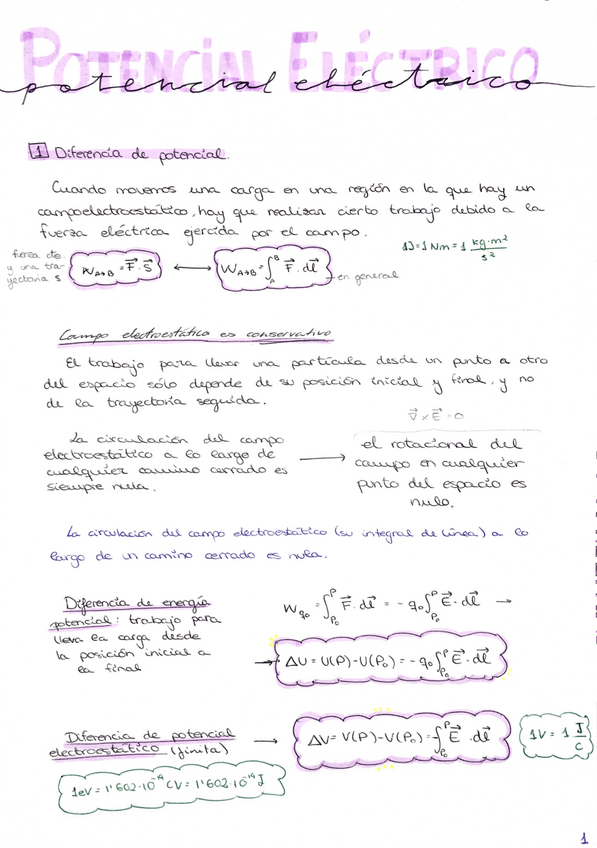 POTENCIAL ELÉCTRICO
potencial eléctrico
1 Diferencia de potencial.
Cuando movemos una carga en una región en la que hay un
campo electroestático, hay que realizar cierto trabajo debido a la
fuerza eléctrica ejercida por el campo.
1J = 1 Nm = 1 kg·m²/s²
fuerza cte.
y una tra-
yectoria s
W_{A→B} = F⃗ · s⃗ ⟷ W_{A→B} = ∫_A^B F⃗ · dl⃗ → en general
Campo electroestático es conservativo
El trabajo para llevar una partícula desde un punto a otro
del espacio sólo depende de su posición inicial y final, y no
de la trayectoria seguida.
∇⃗ × E⃗ = 0
La circulación del campo
electroestático a lo largo de
cualquier camino cerrado es
siempre nula.
→
el rotacional del
campo en cualquier
punto del espacio es
nulo.
La circulación del campo electroestático (su integral de línea) a lo
largo de un camino cerrado es nula.
Diferencia de energía
potencial: trabajo para
lleva la carga desde
la posición inicial a
la final
W_{q₀} = ∫_{P₀}^P F⃗ · dl⃗ = - q₀ ∫_{P₀}^P E⃗ · dl⃗ →
→ ΔU = U(P) - U(P₀) = - q₀ ∫_{P₀}^P E⃗ · dl⃗
Diferencia de potencial
electroestático (finita)
→ ΔV = V(P) - V(P₀) = -∫_{P₀}^P E⃗ · dl⃗
1V = 1 J/C
1eV = 1'602·10⁻¹⁹ CV = 1'602·10⁻¹⁹ J
1